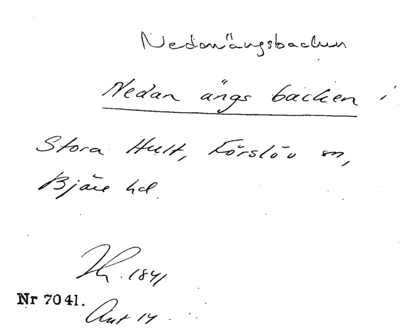 Nedanängsbacken
Nedan ängs backen i
Stora Hult, Förslöv sn,
Bjäre hd.
1841
Nr 7041.
Akt 14.